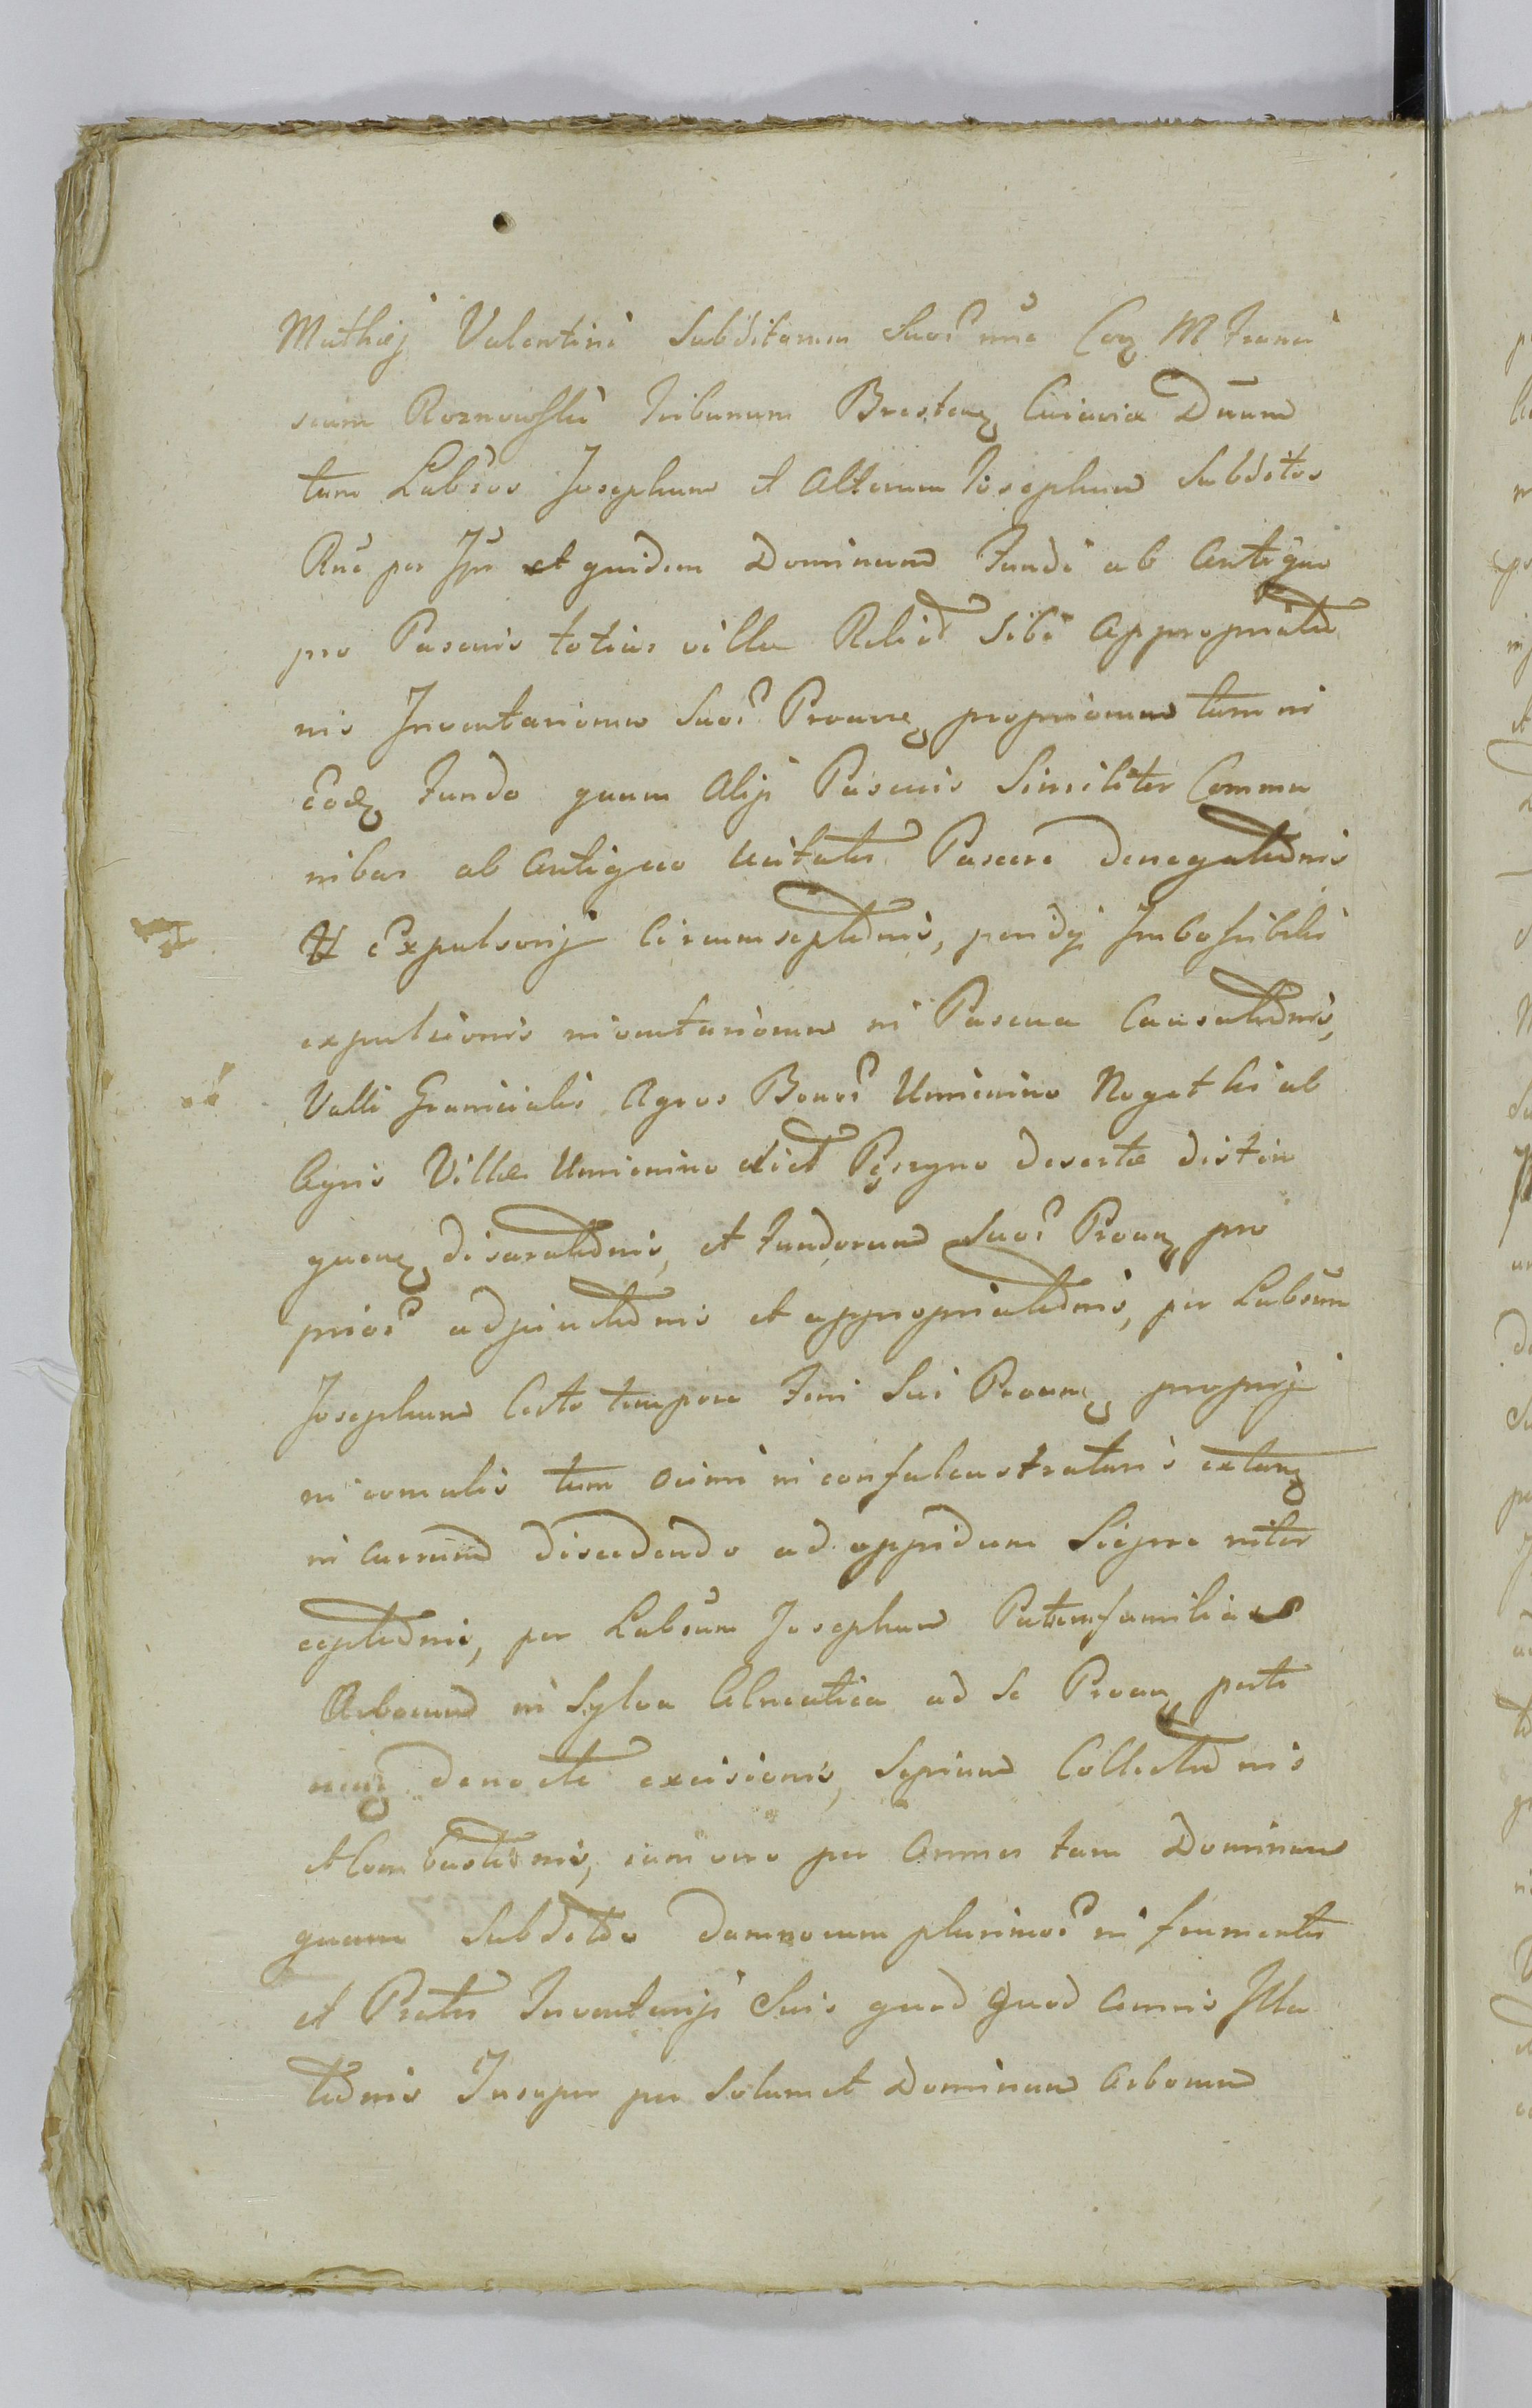 Mathæj Valentini Subditorum Suor̃ nñe Coñ M Franci
scum Roznowski Tribunum Bresteñ Cuiaviæ Dnum
tum Labsos Josephum et Alterum Josephum Subditos
Rñe per et quidem Dominum Fundi ab Antiquo
pro Pascuis totius villæ Relict Sibi Appropriatio
nis Inventariorum Suor̃ propriorum tum in
Eodz Fundo quam Alijs Pascuis Similiter Commu
nibus ab Antiquo Pascere denegationis
et Expulsorij Circumseptionis,
expulsionis inventariorum in Pascua Causationis,
Valli Granicialis Agros Bonor̃ Umienino Nogatki ab
Agris Villæ Umienino dict deserta distin
gueñ disarationis, et Fundorum Suor̃ pro
prior̃ adjunctionis et appropriationis, per Labsum
Josephum Certo tempore Feni Sui proprij
in cumulis tum in extañ
in currum discedendo ad oppidum Sieprc inter
ceptionis, per Labsum Josephum Patremfamilias
Arborum in Sylva ad Se perti
neñ de nocte excisionis, Sepium Collectionis
et Combustionis, tum vero per Annos tam Dominum
quam Subditos damnorum plurimor̃ in frumentis
et Pratis Inventarijs Suis quod quod Annis Illa
tionis Insuper per Solummet Dominum Arborum